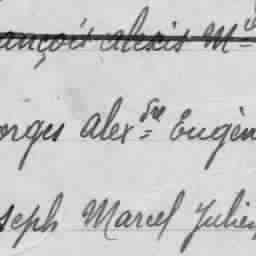 ançois alexis M
orges alex dre Eugèn
seph Marcel Julien